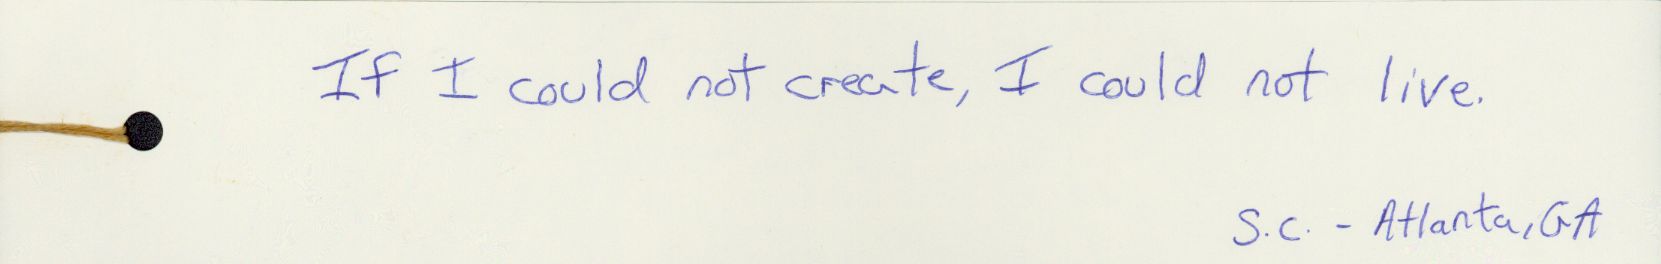 If I could not create, I could not live.
S.C. - Atlanta, GA